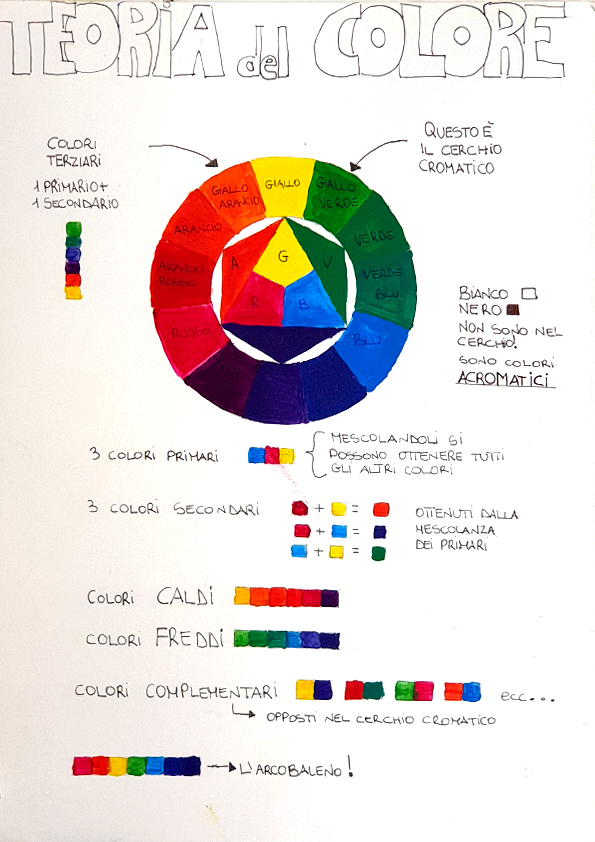 TEORIA del COLORE
COLORI
TERZIARI
1 PRIMARIO+
1 SECONDARIO
QUESTO È
IL CERCHIO
CROMATICO
GIALLO
GIALLO
ARANCIO
GIALLO
VERDE
ARANCIO
VERDE
ARANCIO
ROSSO
VERDE
BLU
ROSSO
BLU
G
A
V
R
B
BIANCO
NERO
NON SONO NEL
CERCHIO!
SONO COLORI
ACROMATICI
3 COLORI PRIMARI
MESCOLANDOLI SI
POSSONO OTTENERE TUTTI
GLI ALTRI COLORI
3 COLORI SECONDARI
+ =
+ =
+ =
OTTENUTI DALLA
MESCOLANZA
DEI PRIMARI
COLORI CALDI
COLORI FREDDI
COLORI COMPLEMENTARI ecc...
OPPOSTI NEL CERCHIO CROMATICO
L'ARCOBALENO!